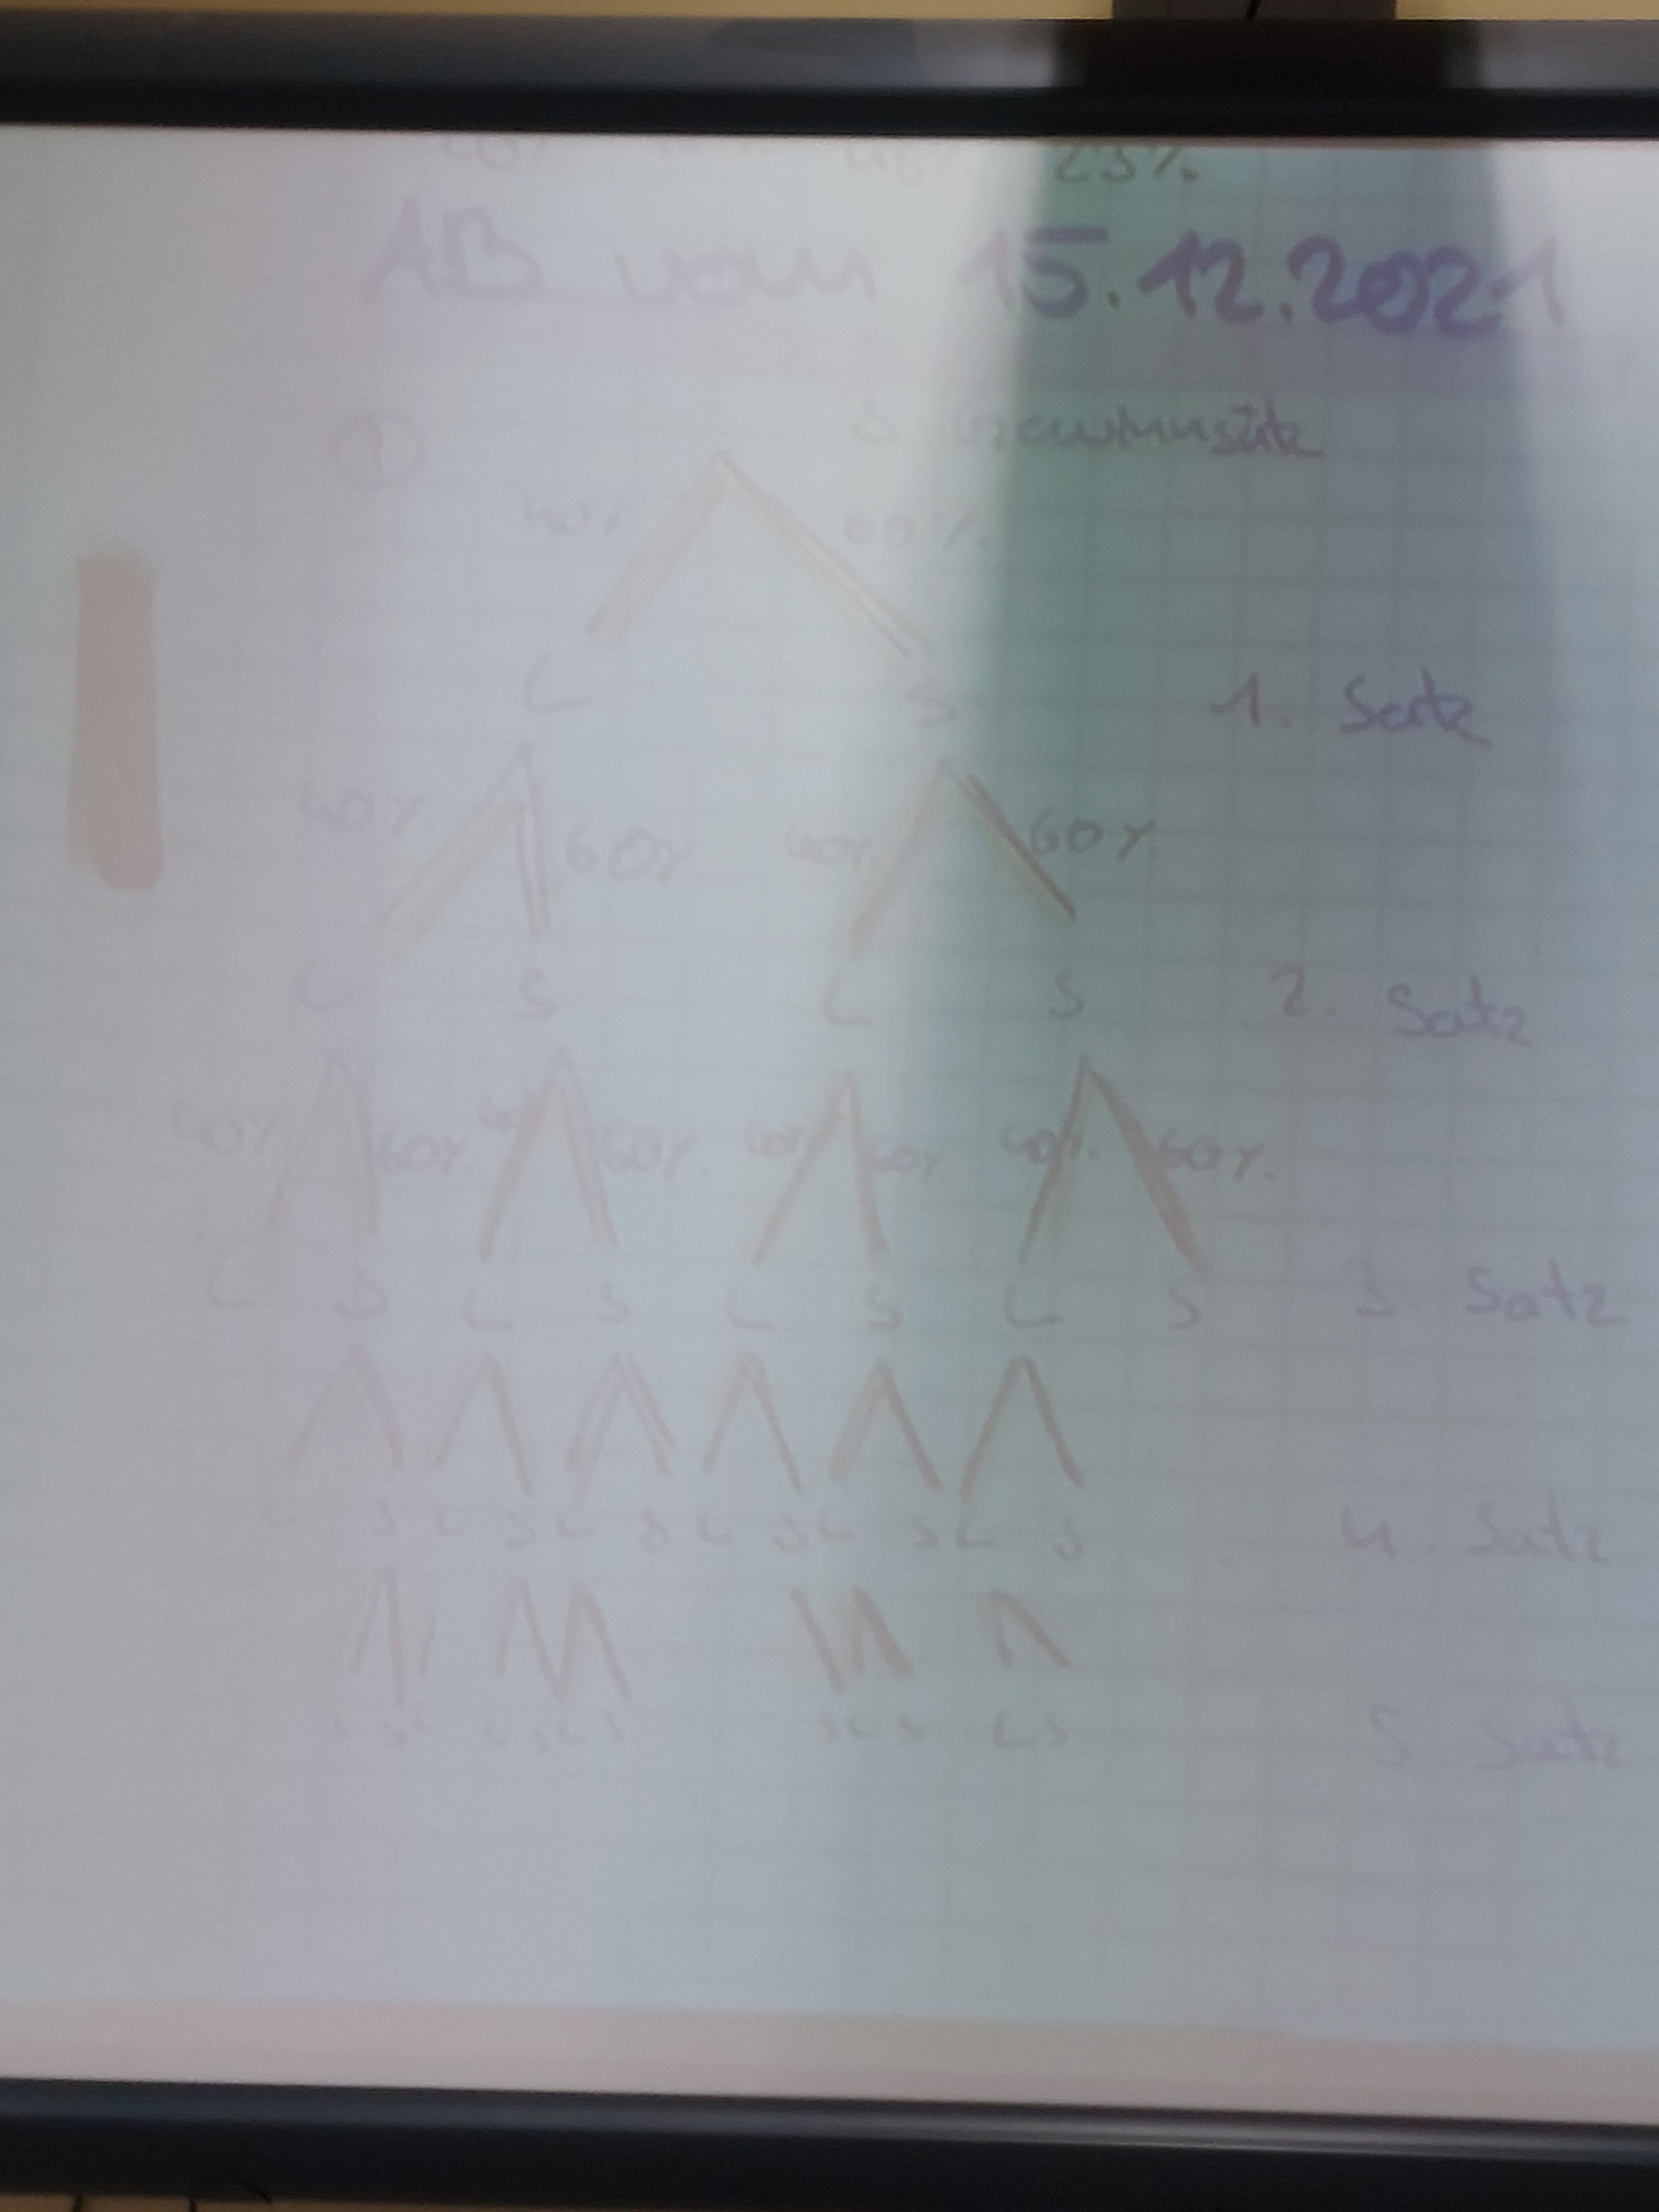 23%.
AB vom 15.12.2021
① 3 Gewinnsätze
40% 60%.
L S 1. Satz
40%. 60% 40%. 60%.
L S L S 2. Satz
40%. 60%. 60%. 40% 60%. 40%. 60%.
L S L S L S L S 3. Satz
L S L S L S L S L S L S 4. Satz
L S L L S L S S L S L S 5. Satz